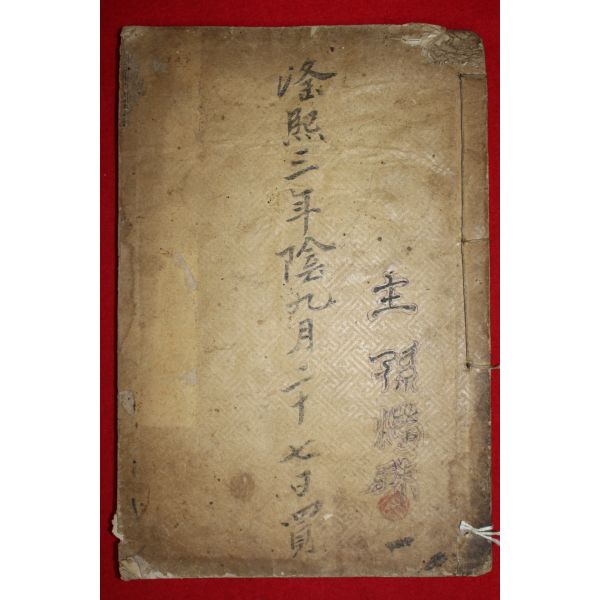 主孫
隆熙三年陰九月二十七日買